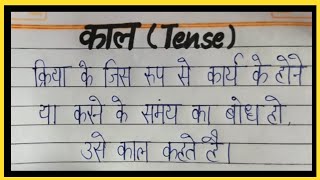 काल (Tense)
क्रिया के जिस रुप से कार्य के होने
या करने के समंय का बोध हो,
उसे काल कहते है।